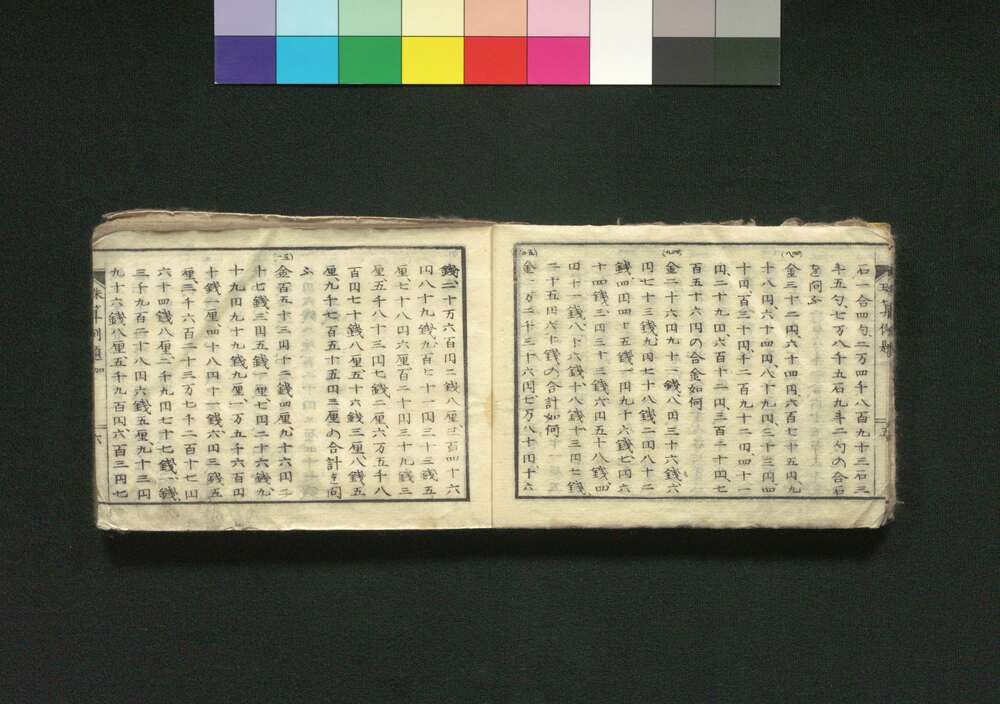 石一合四勺二万四千八百九十三石三
斗五勺七万八千五石九斗二勺の合石
を問ふ
(四八)
金三十二円六十四円六百七十五円九
十八円六十四円八十九円二十三円四
十円百三十円千二百九十二円四十一
円二十九円六百十二円三百三十円七
百五十六円の合金如何
(四九)
金二十六円九十一銭八円三十六銭六
円七十三銭九円七十八銭二円八十二
銭四円五十五銭一円九十六銭七円六
十四銭三円四十三銭六円五十八銭四
円十一銭八十六銭十八銭十三円七銭
二十五円六十銭の合計如何
(五十)
金一万二千三十六円七万八十円十六
銭二十万六百円二銭八厘五百四十六
円八十九銭九百七十一円二十三銭五
厘七十八円六厘百二十円三十九銭三
厘五千八十三円七銭二厘六万五千八
百円七十銭八厘五十六銭三厘八銭五
厘九千七百五十五円三厘の合計を問
ふ
(五一)
金百五十三円十二銭四厘九十六円二
十七銭三円五銭一厘七円二十六銭九
十九円九十九銭九厘一万五千六百円
十銭一厘四十八円十一銭六円三銭五
厘三千六百二十三万七千二百十七円
六十四銭八厘一千九円七十七銭一銭
三千九百二十八円六銭五厘九十三円
九十六銭八厘五千九百円六百三円七
珠算例題 四 六